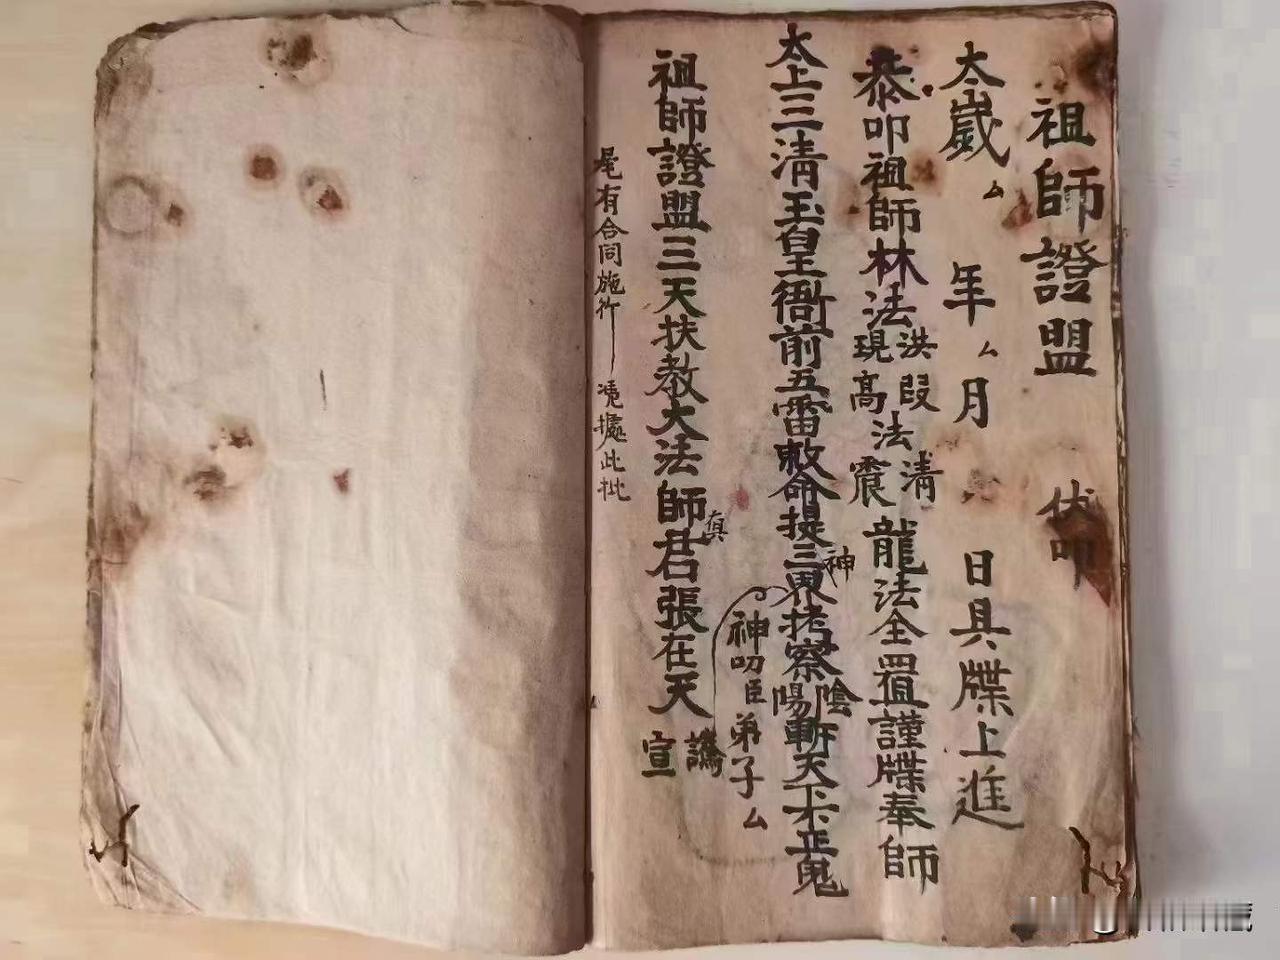 祖師證盟 伏叩
太歲ム年ム月 日具牒上進
恭叩祖師林法洪現段高法清震龍法全置謹牒奉師
太上三清玉皇衙前五雷敕命提三界神拷察陰陽斬天下不正鬼
神叨臣弟子ム
祖師證盟三天扶教大法師真君張在天 宣
尾有合同施行 憑據此批